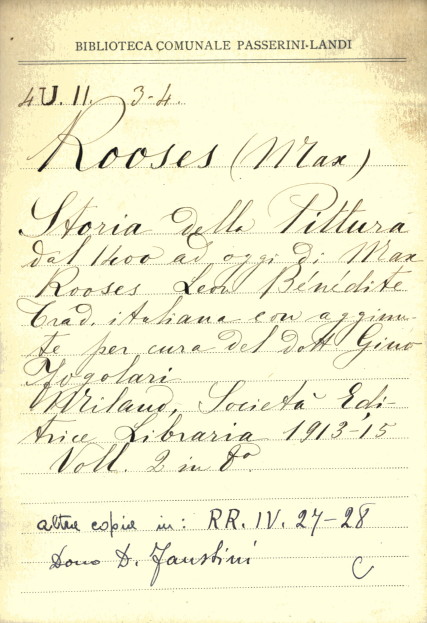 BIBLIOTECA COMUNALE PASSERINI-LANDI
4U.II. 3-4.
Rooses (Max)
Storia della Pittura
dal 1400 ad oggi di Max
Rooses Leon Bénédite
Trad. italiana con aggiun-
te per cura del dott Gino
Fogolari
Milano, Società Edi-
trice Libraria 1913-15
Voll. 2 in 8°
altre copie in: RR. IV. 27-28
Dono D. Faustini
C